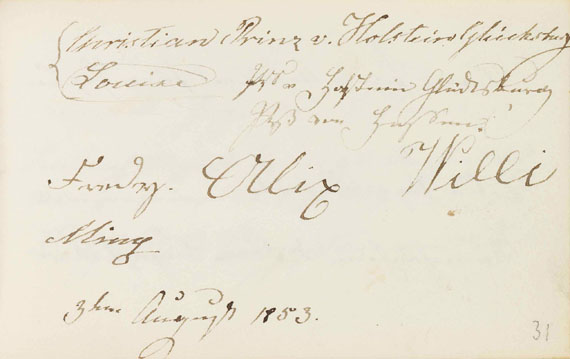 Christian Prinz v. Holstein Glücksburg
Louise Pss v Holstein Glücksburg
Pss von Hessen
Fredy. Alix Willi
Miny
3ten August 1853.
31